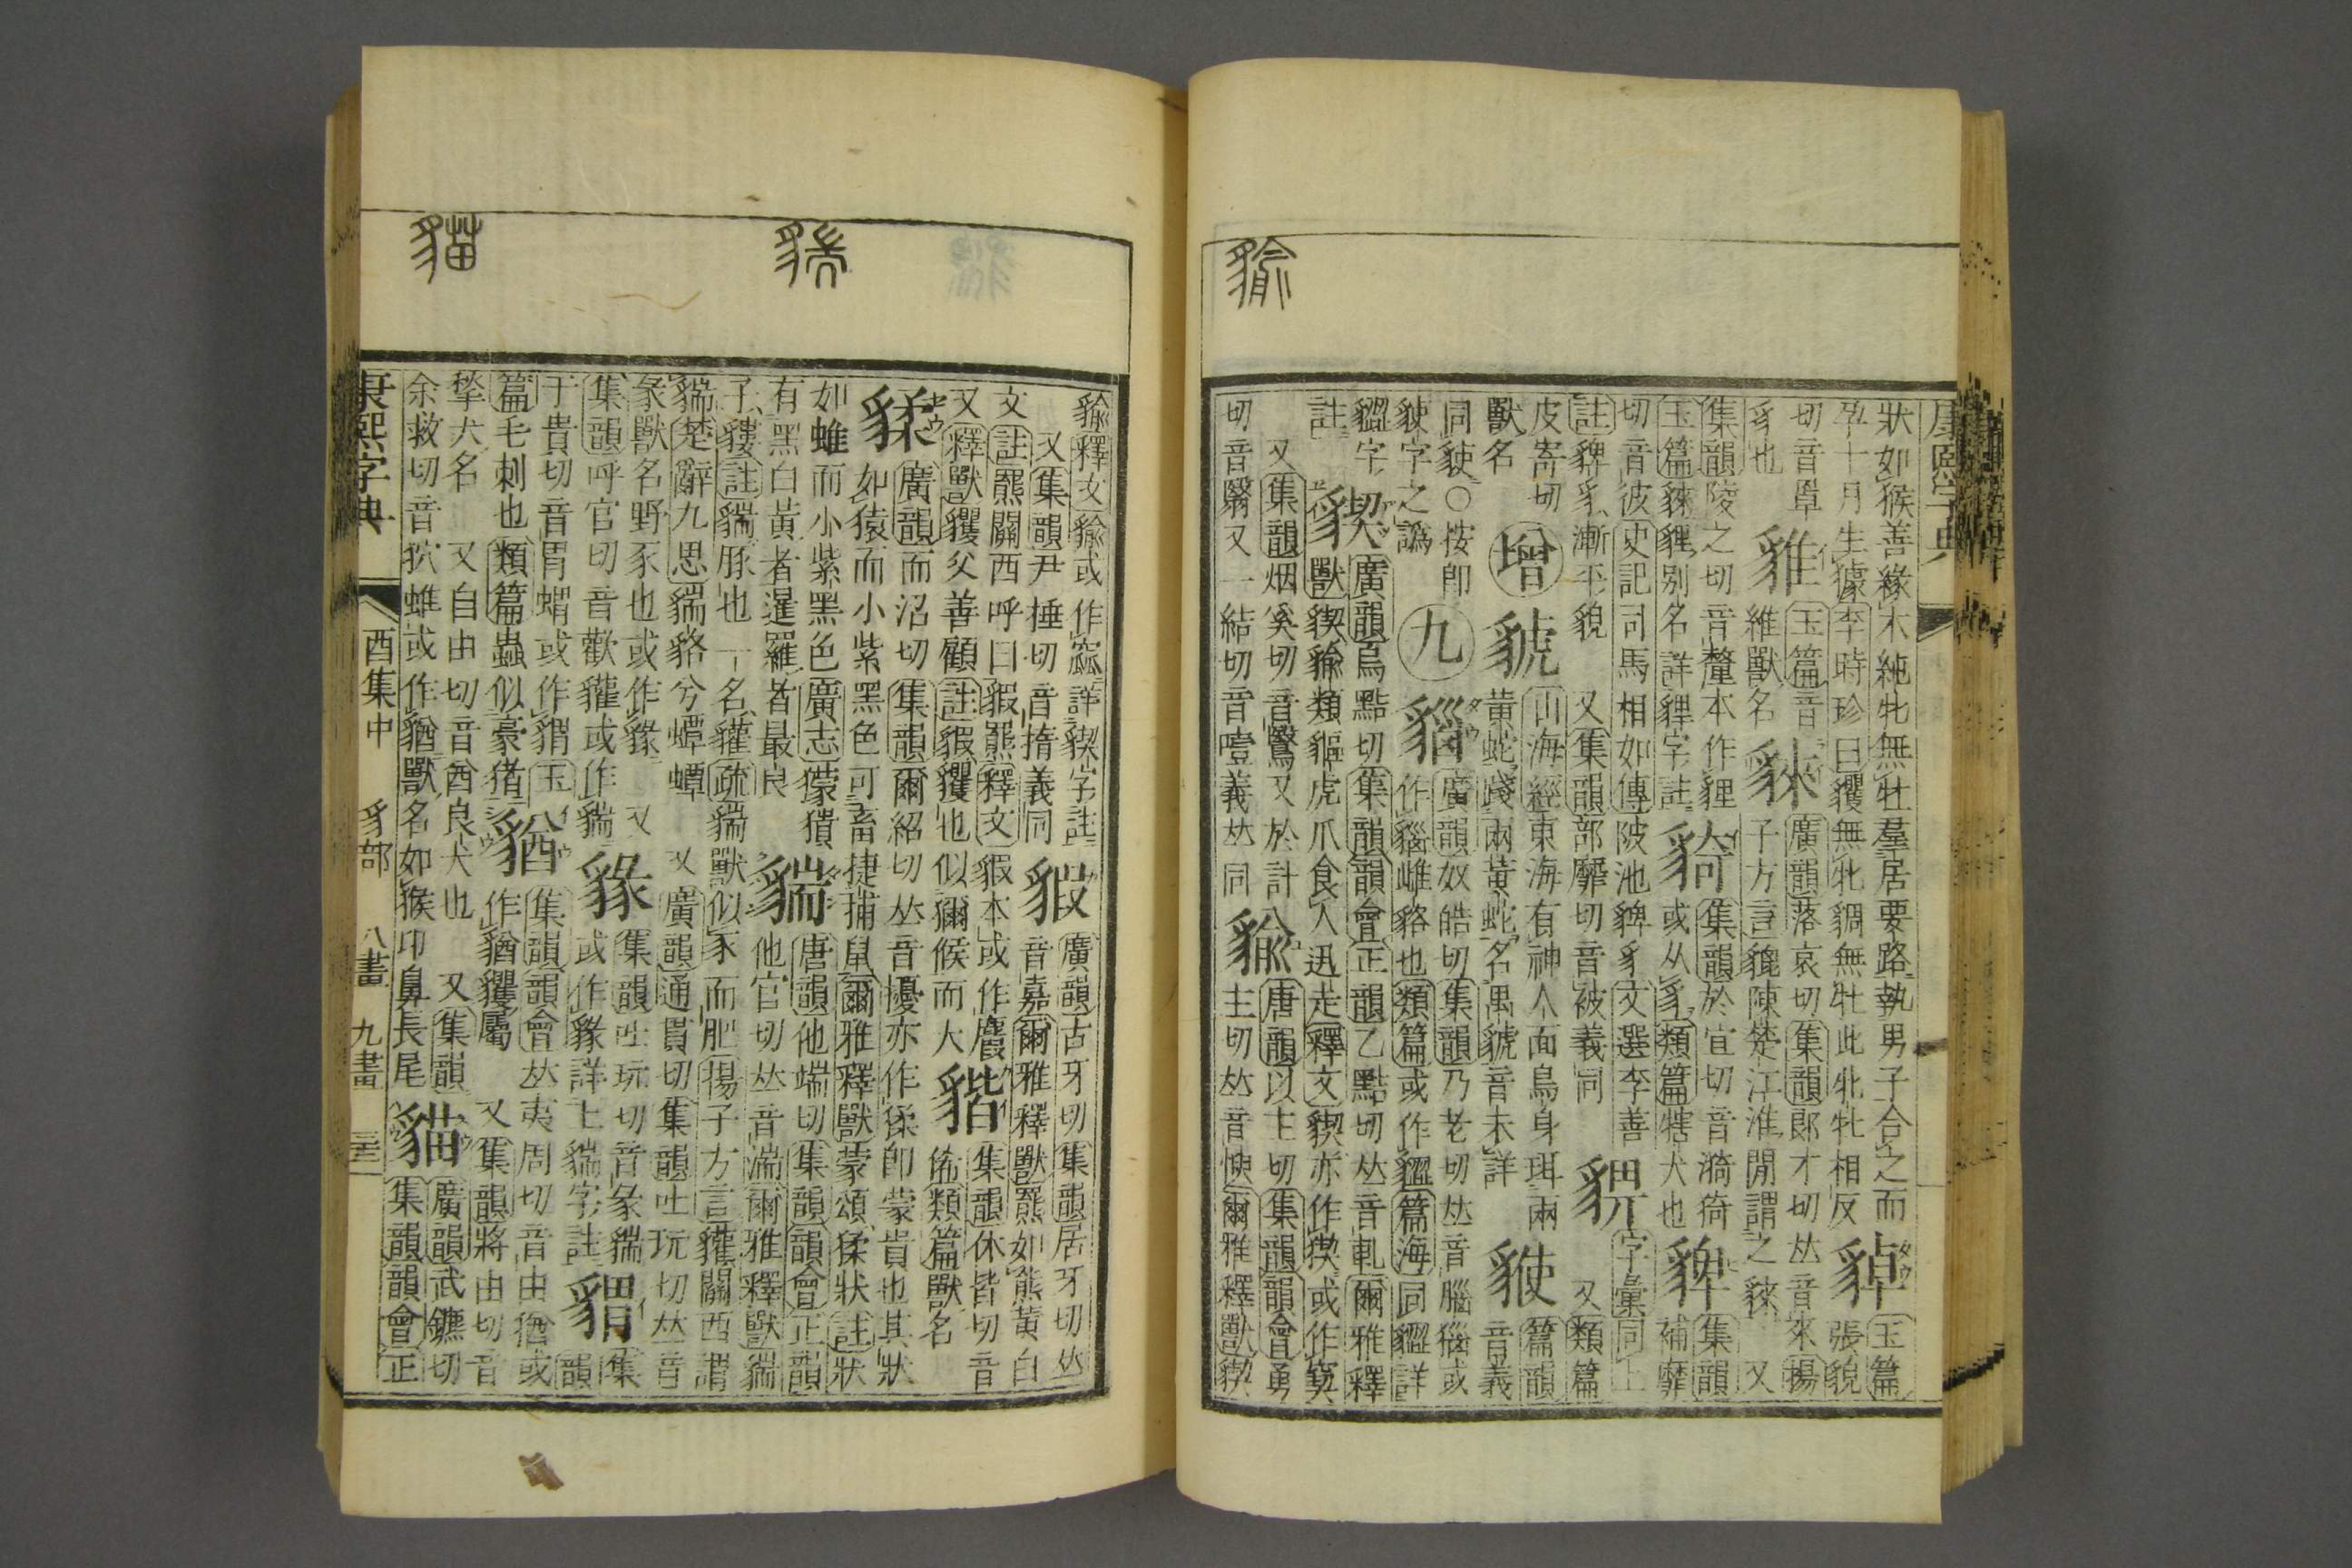 康熙字典
狀如猴善緣木純牝無牡羣居要路執男子合之而
孕十月生據李時珍曰玃無牝豿無牡此牝牡相反
䝜
玉篇
張貌
切音罩
豸也
䝐
玉篇音
維獸名
貅
廣韻落哀切集韻郎才切𠀤音來揚
子方言貔陳楚江淮閒謂之䅘 又
集韻陵之切音釐本作貍
玉篇䅘貍別名詳貍字註
䝝
集韻於宜切音漪猗
或从豸類篇犗犬也
貏
集韻
補靡
切音彼史記司馬相如傳陂池貏豸文選李善
註貏豸漸平貌 又集韻部靡切音被義同
字彙同上
又類篇
皮寄切
獸名
增
貌
山海經東海有神人面鳥身珥兩
黃蛇踐兩黃蛇名禺䝞音未詳
篇韻
音義
同䝠○按卽
䝠字之譌
九
䝩
廣韻奴皓切集韻乃老切𠀤音腦獿或
作䝩雌貉也類篇或作䝟篇海同䝟詳
䝟字
註
貐
廣韻烏黠切集韻韻會正韻乙黠切𠀤音軋爾雅釋
獸猰貐類貙虎爪食人迅走釋文猰亦作㺉或作窫
又集韻烟奚切音鷖又於計
切音翳又一結切音噎義𠀤同
貐
唐韻以主切集韻韻會勇
主切𠀤音愉爾雅釋獸猰
貐釋文貐或作窳詳猰字註
又集韻尹捶切音撱義同
貑
廣韻古牙切集韻居牙切𠀤
音嘉爾雅釋獸羆如熊黃白
文註羆關西呼曰貑羆釋文貑本或作麚
又釋獸玃父善顧註貑玃也似獼猴而大
䝨
集韻休皆切音
俙類篇獸名
猱
廣韻而沼切集韻爾紹切𠀤音擾亦作猱卽蒙貴也其狀
如猿而小紫黑色可畜捕鼠爾雅釋獸蒙頌猱狀註狀
如蜼而小紫黑色廣志獴㹔
有黑白黃者暹羅者最良
貒
唐韻他端切集韻韻會正韻
他官切𠀤音湍爾雅釋獸貒
子貗註貒豚也一名貛疏貒獸似豕而肥揚子方言貛關西謂
貒楚辭九思貒貉兮蟫蟫 又廣韻通貫切集韻吐玩切𠀤音
彖獸名野豕也或作貁 又
集韻呼官切音歡貛或作貒
䝪
集韻吐玩切音彖貒
或作貁詳上貒字註
䝧
集
韻
于貴切音胃蝟或作䝧玉
篇毛刺也類篇蟲似豪豬
䝤
集韻韻會𠀤夷周切音由猶或
作䝤玃屬 又集韻將由切音
揫犬名 又自由切音酋良犬也 又集韻
余救切音狖蜼或作䝤獸名如猴卬鼻長尾
貓
廣韻武鑣切
集韻韻會正
康熙字典 酉集中 豸部 八畫 九畫